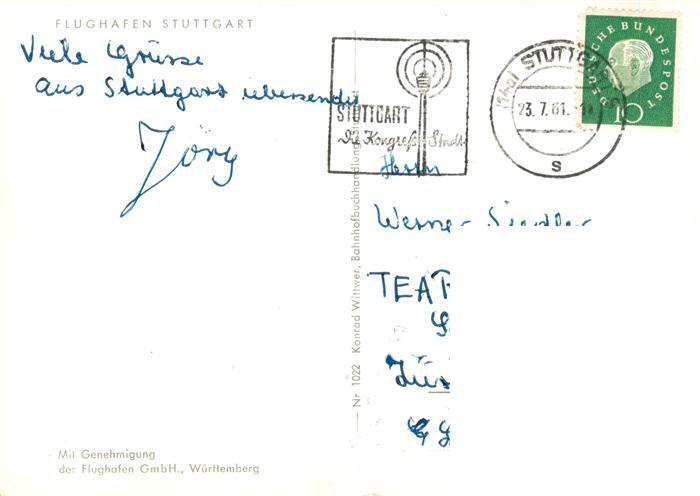 FLUGHAFEN STUTTGART
Viele Grüsse
aus Stuttgart übersendet
Jörg
STUTTGART
Die Kongreß-Stadt
STUTTGART
23.7.61
S
DEUTSCHE BUNDESPOST
10
Herrn
Werner
TEA
Nr 1022 Konrad Wittwer, Bahnhofbuchhandlung, Stuttgart
Mit Genehmigung
der Flughafen GmbH., Württemberg